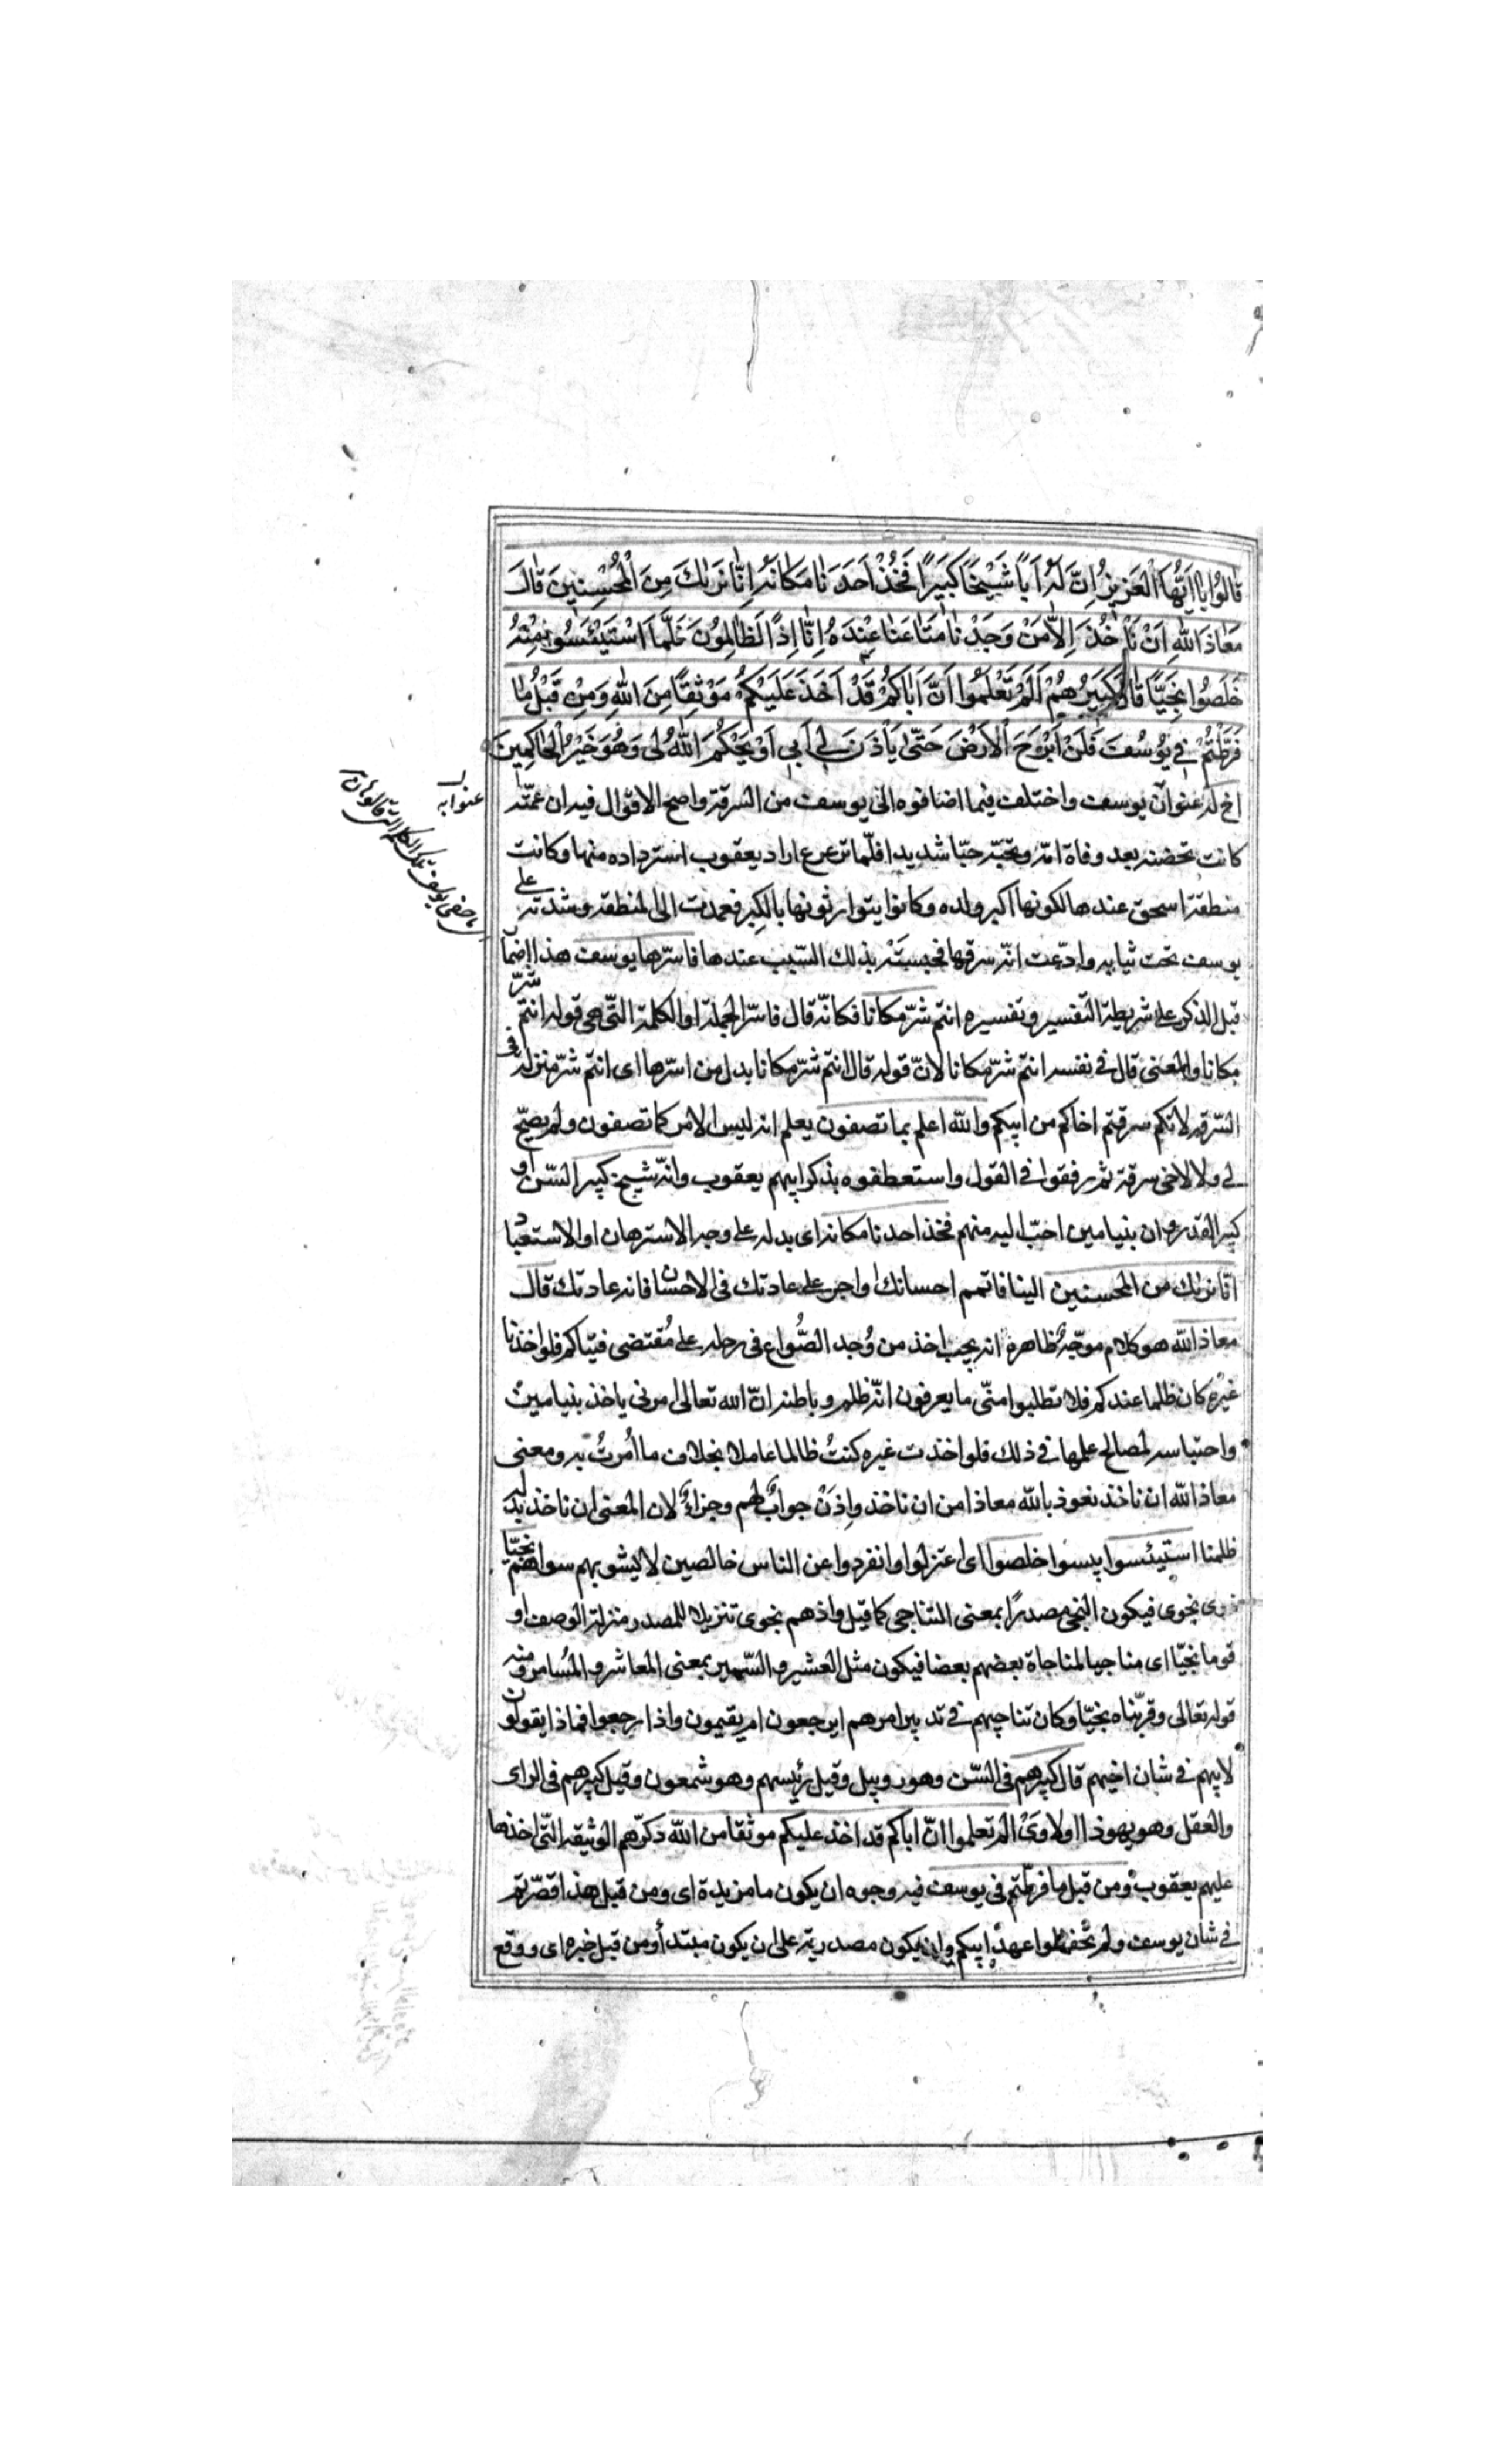 قَالُوا يَا اَيُّهَا الْعَزِيزُ اِنَّ لَهُ اَبًا شَيْخًا كَبِيرًا فَخُذْ اَحَدَنَا مَكَانَهُ اِنَّا نَرٰيكَ مِنَ الْمُحْسِنِينَ قَالَ
مَعَاذَ اللّٰهِ اَنْ نَأْخُذَ اِلَّا مَنْ وَجَدْنَا مَتَاعَنَا عِنْدَهُ اِنَّا اِذًا لَظَالِمُونَ فَلَمَّا اسْتَيْئَسُوا مِنْهُ
خَلَصُوا نَجِيًّا قَالَ كَبِيرُهُمْ اَلَمْ تَعْلَمُوا اَنَّ اَبَاكُمْ قَدْ اَخَذَ عَلَيْكُمْ مَوْثِقًا مِنَ اللّٰهِ وَمِنْ قَبْلُ مَا
فَرَّطْتُمْ فِي يُوسُفَ فَلَنْ اَبْرَحَ الْاَرْضَ حَتّٰى يَأْذَنَ لِي اَبِي اَوْ يَحْكُمَ اللّٰهُ لِي وَهُوَ خَيْرُ الْحَاكِمِينَ
اخ له عنوا به يوسف واختلف فيما اضافوه الى يوسف من السرقة واصح الاقوال فيه ان عمّته
كانت تحضنه بعد وفاة امّه وتحبّه حبّا شديدا فلمّا ترعرع اراد يعقوب استرداده منها وكانت
منطقة اسحق عندها لكونها اكبر ولده وكانوا يتوارثونها بالكبر فعمدت الى المنطقة وشدته على
يوسف تحت ثيابه وادّعت انّه سرقها فحبسته بذلك السّبب عندها فاسرّها يوسف هذا اضمار
قبل الذكر على شريطة التفسير وتفسيره انتم شرّ مكانا فكانّه قال فاسرّ الجملة او الكلمة التّي هي قوله انتم شرّ
مكانا والمعنى قال في نفسه انتم شرّ مكانا لانّ قوله قال انتم شرّ مكانا بدل من اسرّها اى انتم شرّ منزلة في
السّرقة لانكم سرقتم اخاكم من ابيكم والله اعلم بما تصفون يعلم انه ليس الامر كما تصفون ولم يصحّ
لي ولا لاخى سرقة ثم رفقوا في القول واستعطفوه بذكر ابيهم يعقوب وانّه شيخ كبير السّن او
كبير القدر وان بنيامين احبّ اليه منهم فخذ احدنا مكانه اى بدله على وجه الاسترهان او الاستعباد
انّا نريك من المحسنين الينا فاتمم احسانك او اجر على عادتك في الاحسان فانه عادتك قال
معاذ الله هو كلام موجّه ظاهره انه يجب اخذ من وُجد الصُّواع في رحله على مُقتضى فتياكم فلو اخذنا
غيره كان ظلما عندكم فلا تطلبوا منّى ما يعرفون انّه ظلم وباطنه انّ الله تعالى امرنى ياخذ بنيامين
واحتباسه لمصالح علمها في ذلك فلو اخذت غيره كنتُ ظالما عاملا بخلاف ما اُمرتُ به ومعنى
معاذ الله ان ناخذ نعوذ بالله معاذا من ان ناخذ واِذَنْ جوابٌ لهم وجزاءٌ لان المعنى ان ناخذ بدله
ظلمنا استيئسوا يئسوا خلصوا اى اعتزلوا وانفردوا عن الناس خالصين لا يشوبهم سواهم نجيّا
ذوى نجوى فيكون النجى مصدرًا بمعنى التناجى كما قيل واذ هم نجوى تنزيلا للمصدر منزلة الوصف او
قوما نجيّا اى مناجيا لمناجاة بعضهم بعضا فيكون مثل العشير والسّمير بمعنى المعاشر والمُسامر ومنه
قوله تعالى وقرّبناه نجيّا وكان تناجيهم في تدبير امرهم ايرجعون ام يقيمون واذا رجعوا فماذا يقولون
لابيهم في شان اخيهم قال كبيرهم في السّن وهو روبيل وقيل رئيسهم وهو شمعون وقيل كبيرهم في الراى
والعقل وهو يهوذا او لاوى الم تعلموا انّ اباكم قد اخذ عليكم موثقا من الله ذكّرهم الوثيقة التّي اخذها
عليهم يعقوب ومن قبل ما فرطتم في يوسف فيه وجوه ان يكون ما مزيدة اى ومن قبل هذا قصّرتم
في شان يوسف ولم تحفظوا عهد ابيكم وان يكون مصدرية على ان يكون مبتدأ ومن قبل خبره اى ووقع
عنوا به